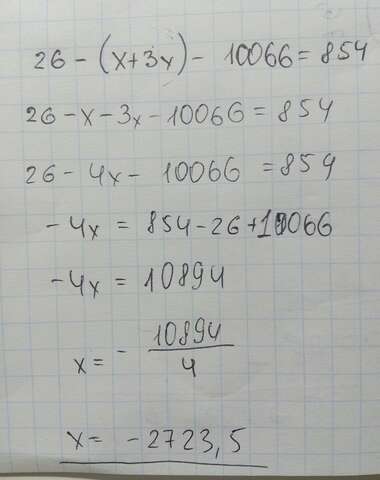 26 - (x+3x) - 10066 = 854
26 - x - 3x - 10066 = 854
26 - 4x - 10066 = 854
- 4x = 854 - 26 + 10066
- 4x = 10894
x = - 10894/4
x = - 2723,5